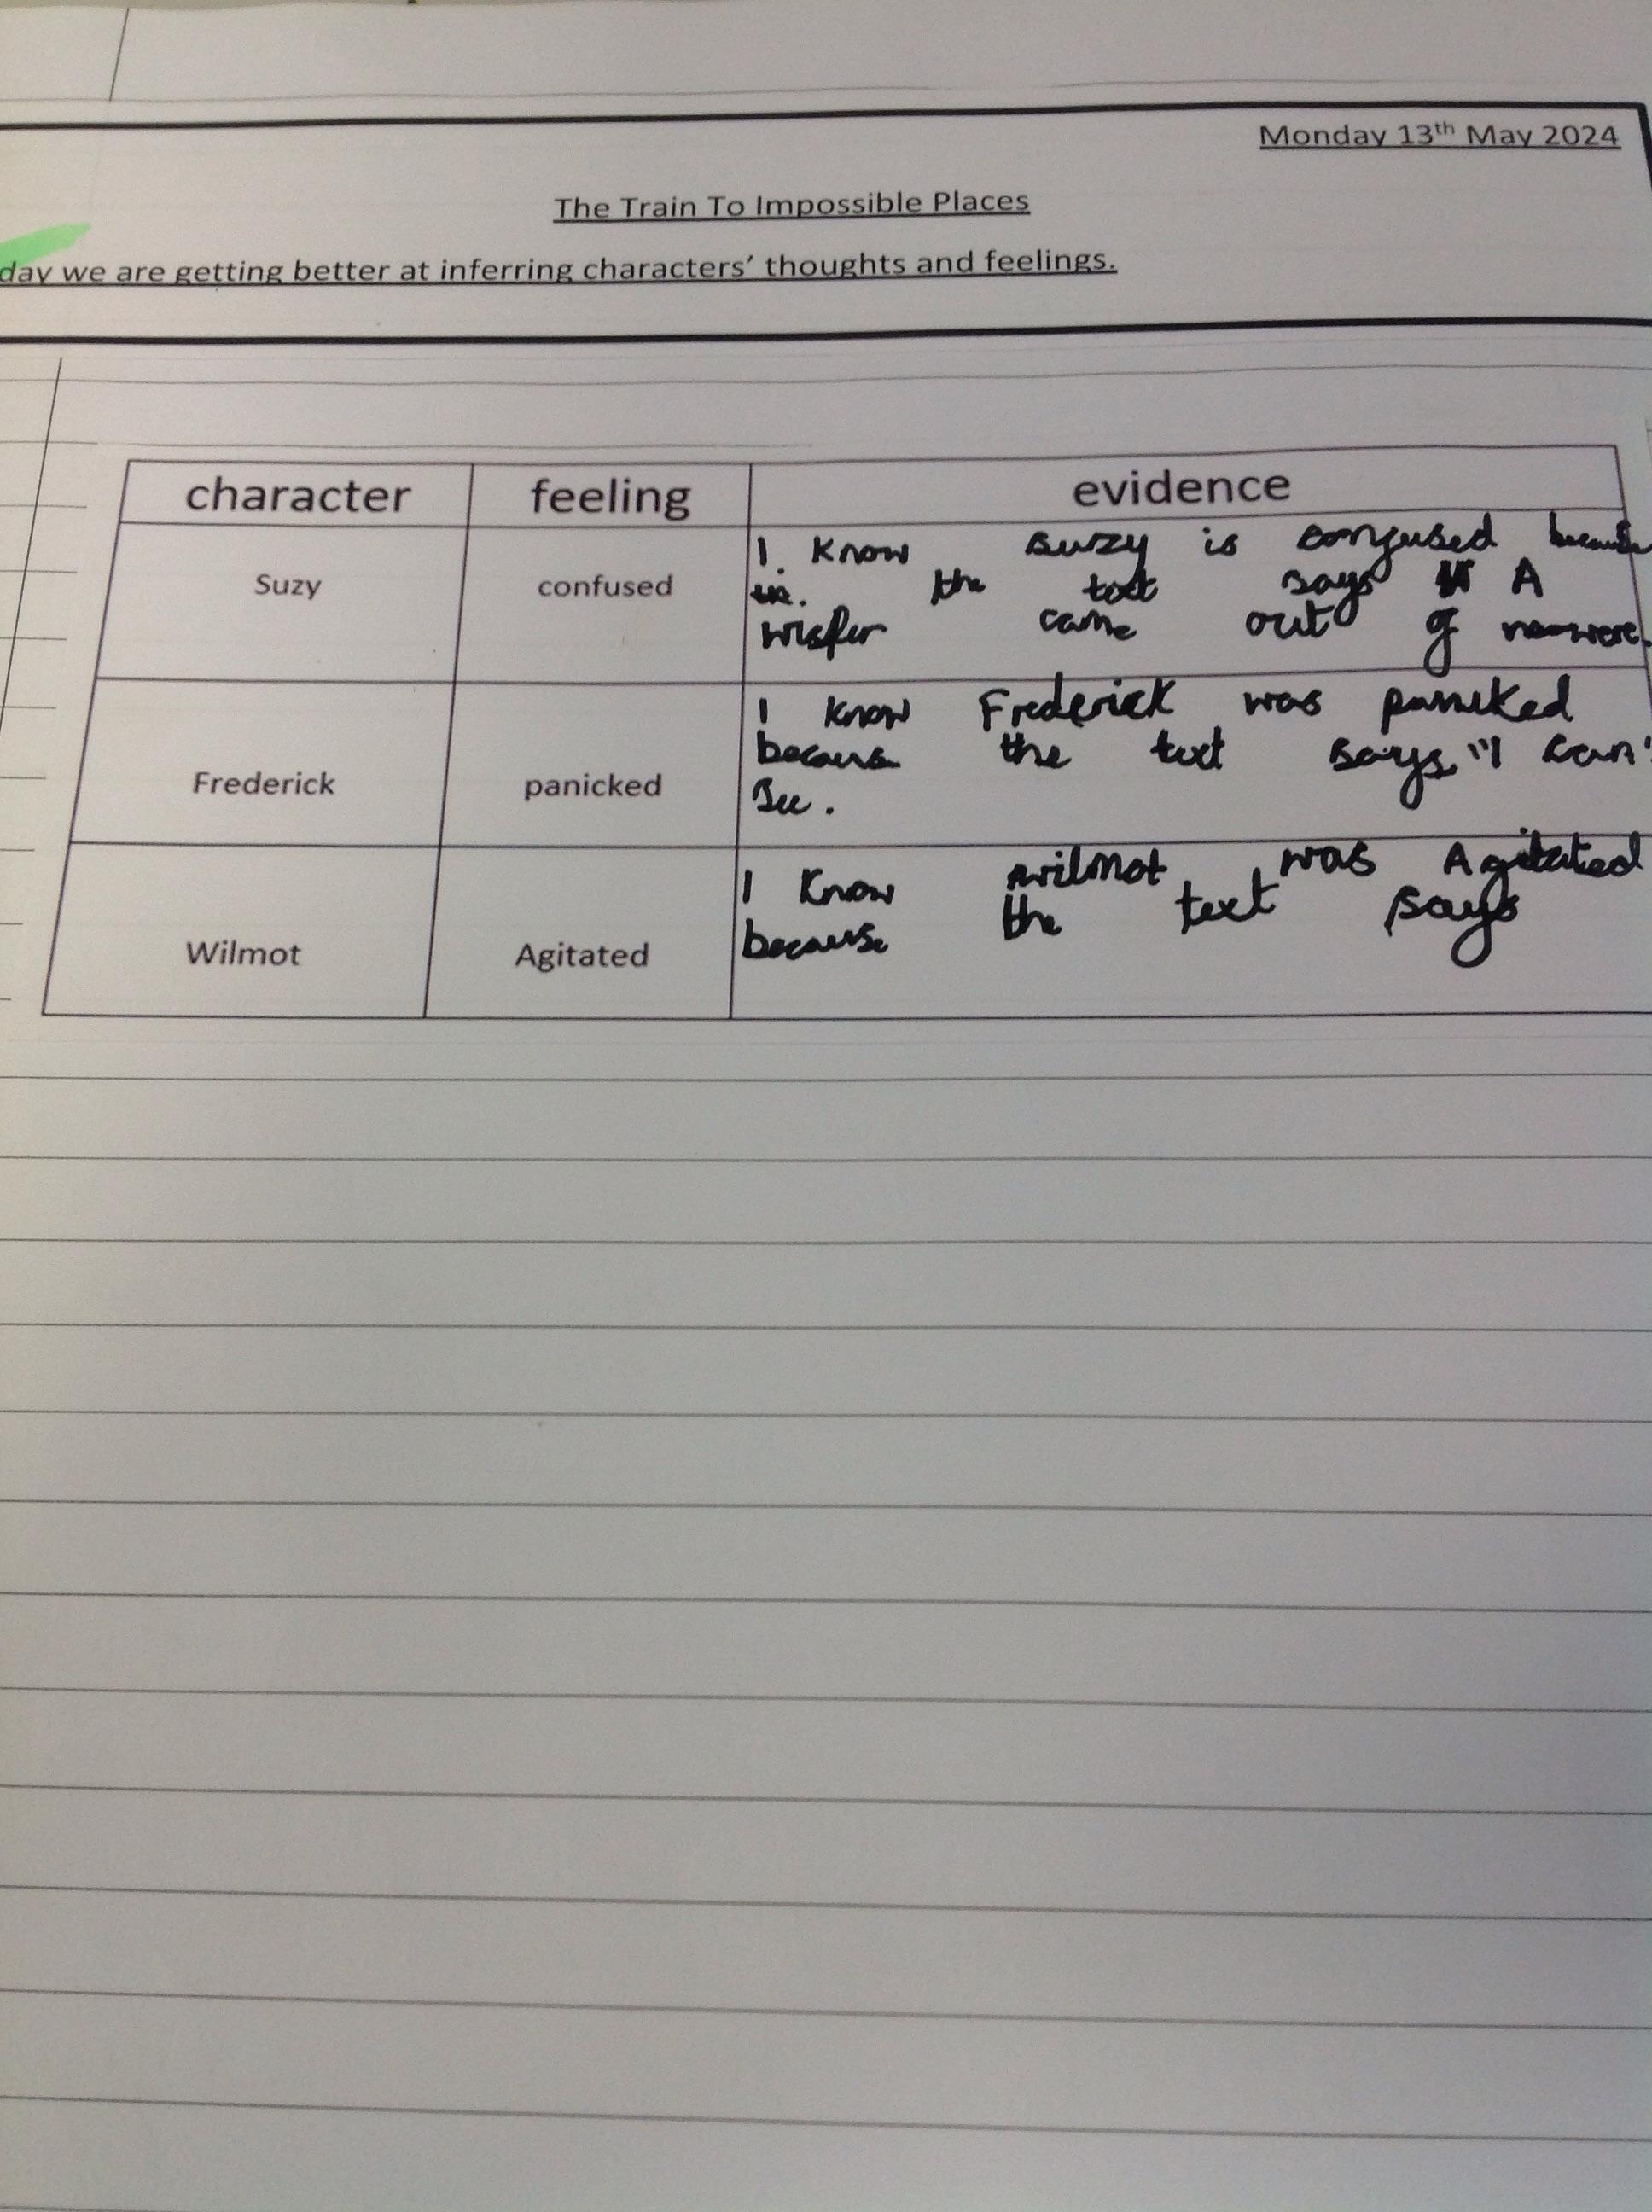 Monday 13th May 2024
The Train To Impossible Places
day we are getting better at inferring characters' thoughts and feelings.
character feeling evidence
Suzy confused
I know suzy is confused because
the text says A
wisper came out of nowere.
Frederick panicked
I know Frederick was panicked
because the text says "I can'
See.
Wilmot Agitated
I know wilmot was Agitated
because the text says